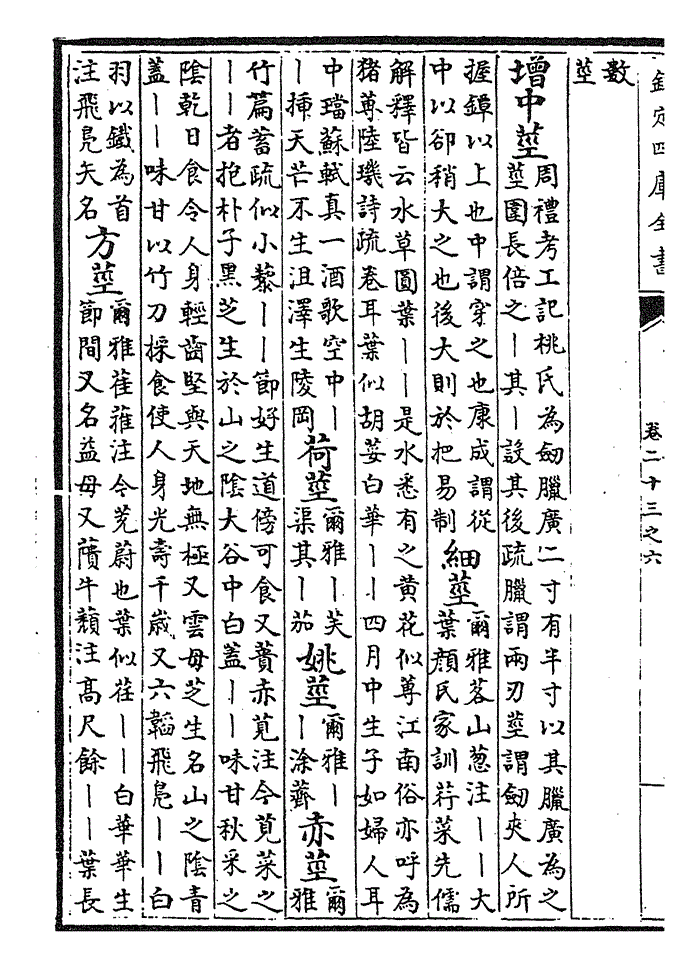 欽定四庫全書
卷二十三之六
數
莖
增中莖
周禮考工記桃氏為劒臘廣二寸有半寸以其臘廣為之
莖圍長倍之丨其丨設其後疏臘謂兩刃莖謂劒夾人所
握鐔以上也中謂穿之也康成謂從
中以卻稍大之也後大則於把易制
細莖
爾雅茖山葱注丨丨大
葉顔氏家訓荇菜先儒
解釋皆云水草圓葉丨丨是水悉有之黄花似蓴江南俗亦呼為
猪蓴陸璣詩疏卷耳葉似胡荽白華丨丨四月中生子如婦人耳
中璫蘇軾真一酒歌空中丨
丨揷天芒不生沮澤生陵岡
荷莖
爾雅丨芙
渠其丨茄
姚莖
爾雅丨
丨涂薺
赤莖
爾
雅
竹萹蓄疏似小藜丨丨節好生道傍可食又蕢赤莧注今莧菜之
丨丨者抱朴子黑芝生於山之陰大谷中白蓋丨丨味甘秋采之
陰乾日食令人身輕齒堅與天地無極又雲母芝生名山之陰青
蓋丨丨味甘以竹刀採食使人身光壽千歲又六韜飛鳧丨丨白
羽以鐵為首
注飛鳧矢名
方莖
爾雅萑蓷注今茺蔚也葉似荏丨丨白華華生
節間又名益母又藬牛蘈注高尺餘丨丨葉長